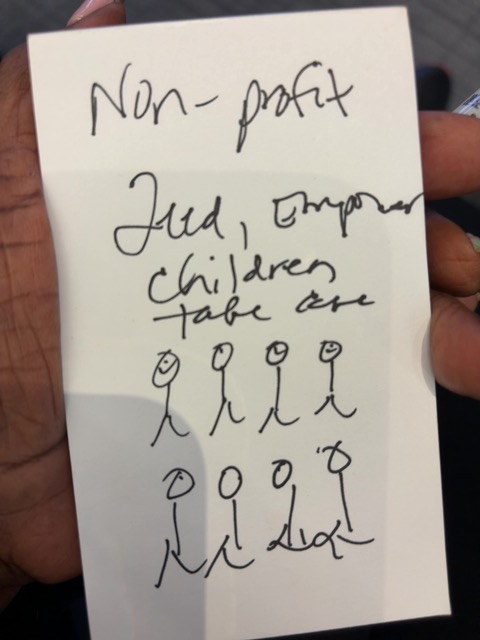 Non-profit
Feed, Empower
children
take care